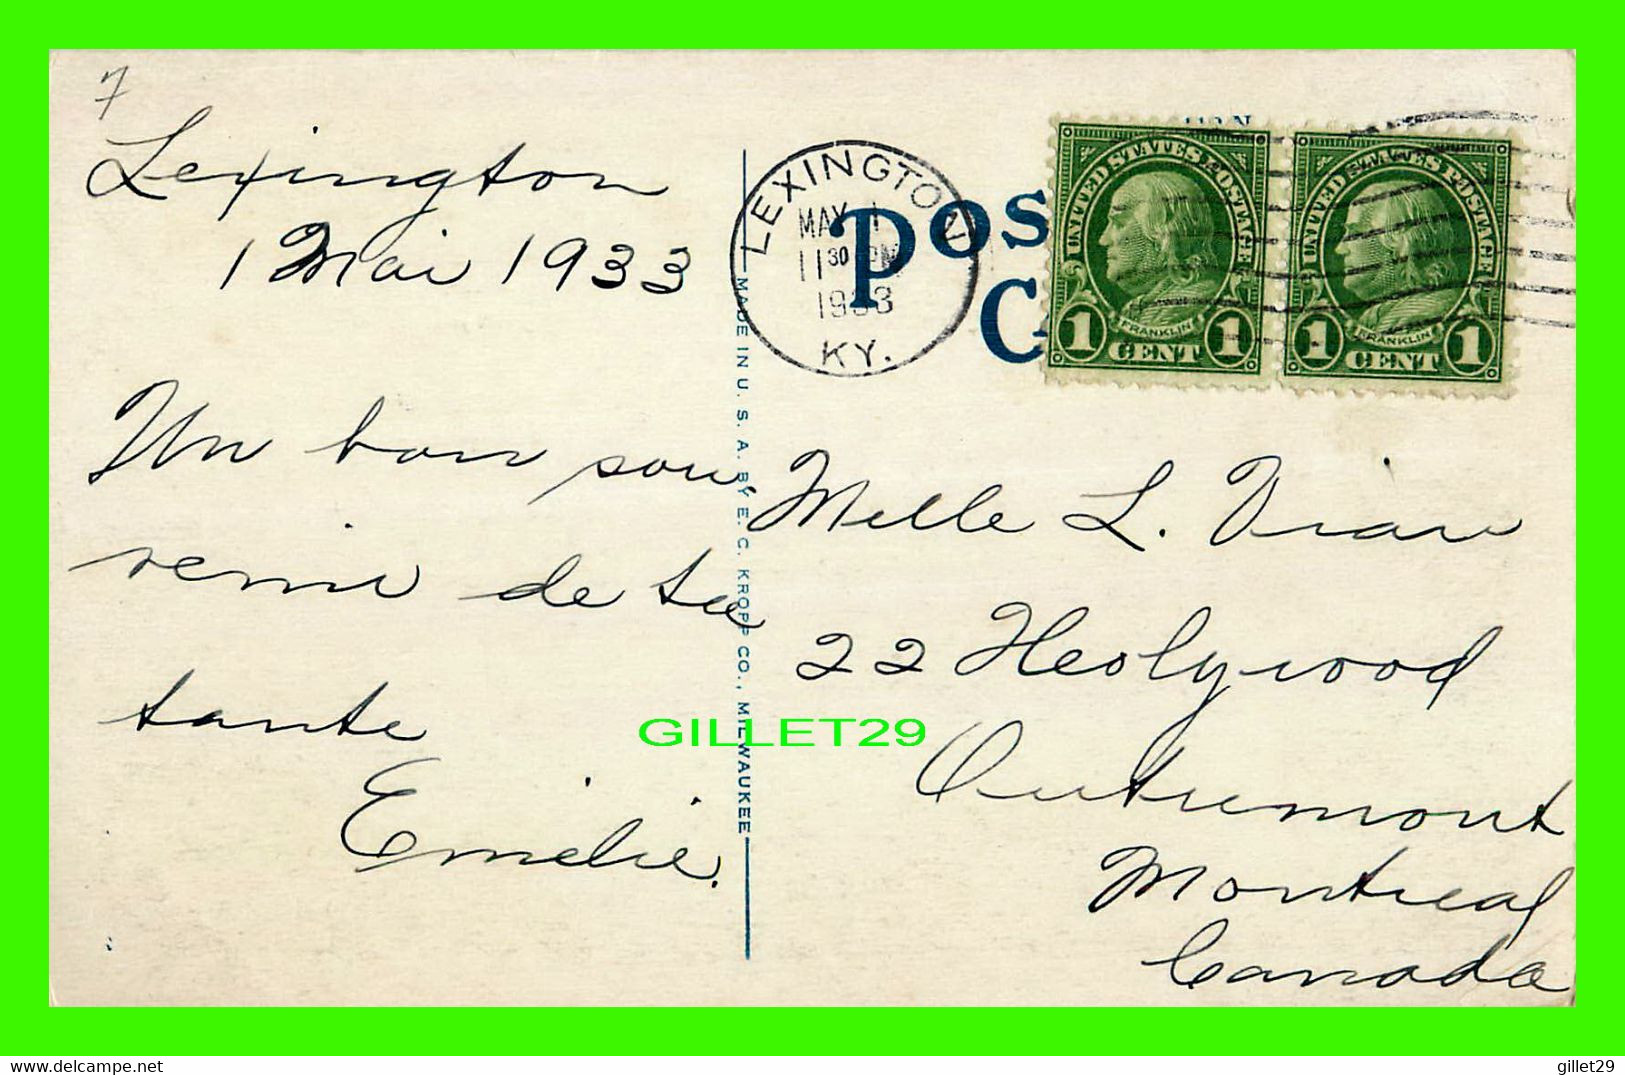 7
Lexington
1 Mai 1933
Un bon sou
venir de ta
tante
Emélie.
LEXINGTON
MAY 1
11 30 PM
1933
KY.
POS
C
UNITED STATES POSTAGE
FRANKLIN
1 CENT 1
UNITED STATES POSTAGE
FRANKLIN
1 CENT 1
MADE IN U. S. A. BY E. C. KROPP CO., MILWAUKEE
Melle L. Viau
22 Hollywood
Outremont
Montreal
Canada
GILLET29
delcampe.net
gillet29